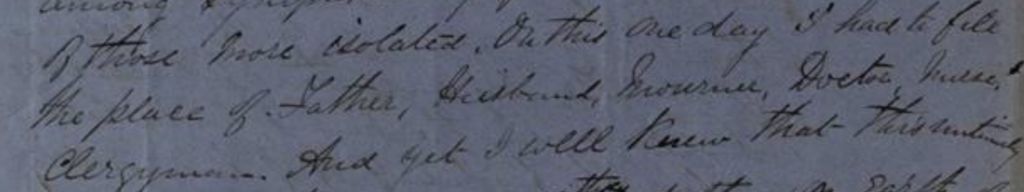 among
of those more isolated. On this one day I had to fill
the place of Father, Husband, Mourner, Doctor, Nurse, &
Clergyman. And yet I well knew that this
Earth